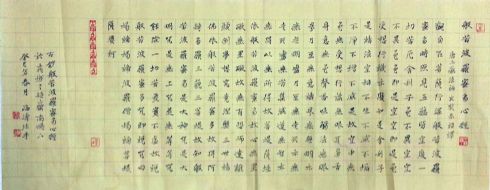 般若波羅蜜多心經
唐三藏法師玄奘奉詔譯
觀自在菩薩行深般若波羅
蜜多時照見五蘊皆空度一
切苦厄舍利子色不異空空
不異色色即是空空即是色
受想行識亦復如是舍利子
是諸法空相不生不滅不垢
不淨不增不減是故空中無
色無受想行識無眼耳鼻舌
身意無色聲香味觸法無眼
界乃至無意識界無無明亦
無無明盡乃至無老死亦無
老死盡無苦集滅道無智亦
無得以無所得故菩提薩埵
依般若波羅蜜多故心無罣
礙無罣礙故無有恐怖遠離
顛倒夢想究竟涅槃三世諸
佛依般若波羅蜜多故得阿
耨多羅三藐三菩提故知般
若波羅蜜多是大神咒是大
明咒是無上咒是無等等咒
能除一切苦真實不虛故說
般若波羅蜜多咒即說咒曰
揭諦揭諦波羅揭諦波羅僧揭諦菩提
薩婆訶
般若波羅蜜多心經
年春月